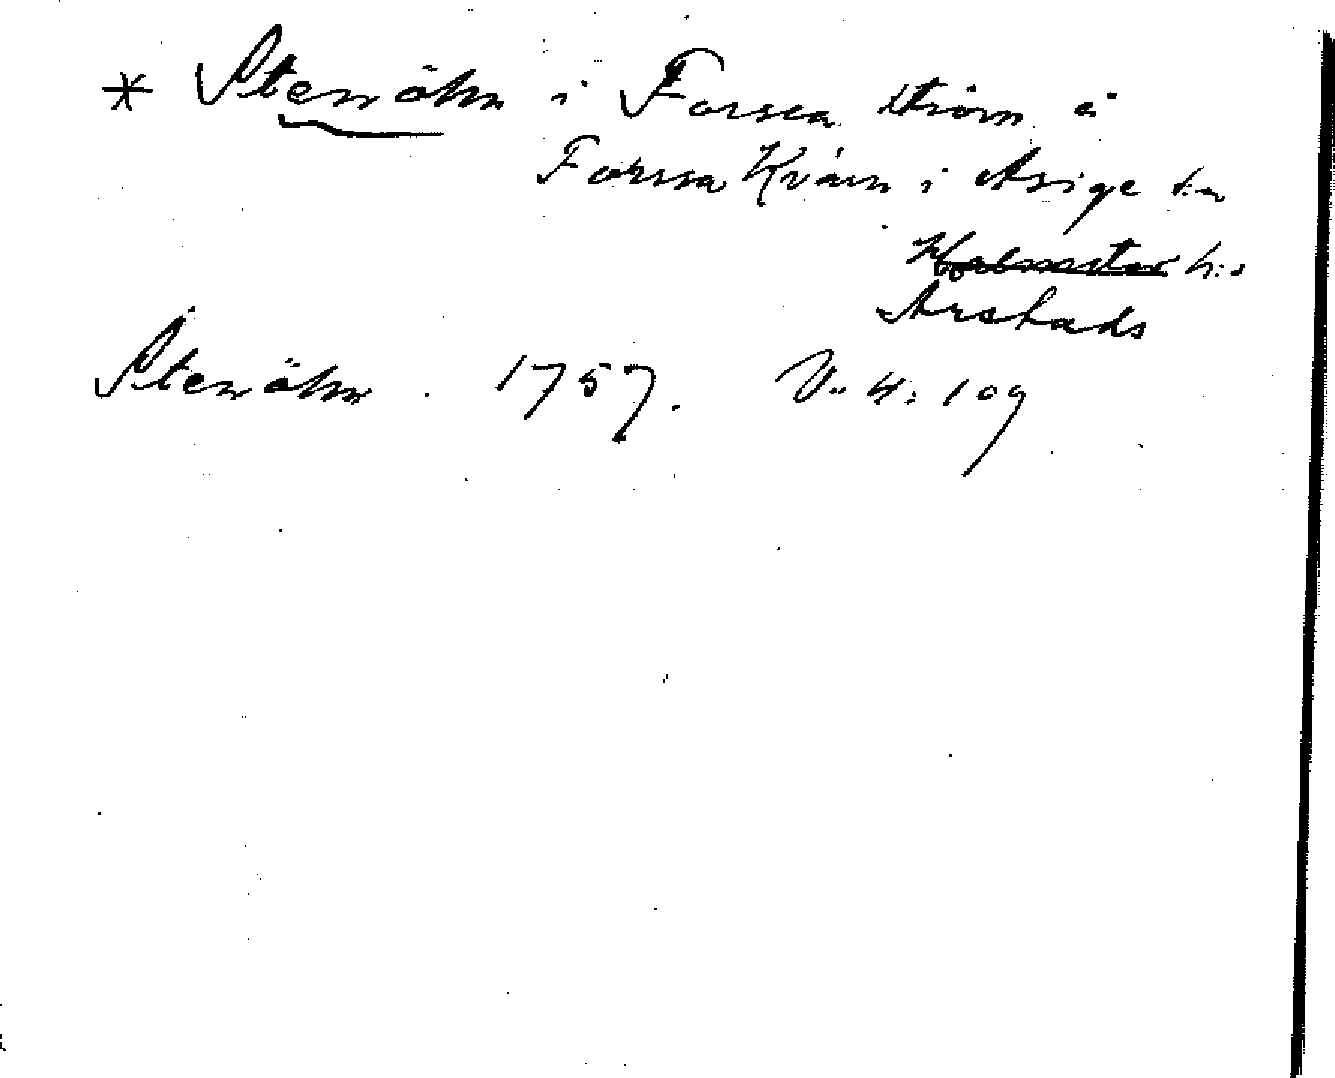 * Stenöhn i Forssa ström å
Forssa Kvarn i Asige s:n
Halmstad h:d
Årstads
Stenöhn. 1757. V. 4: 109